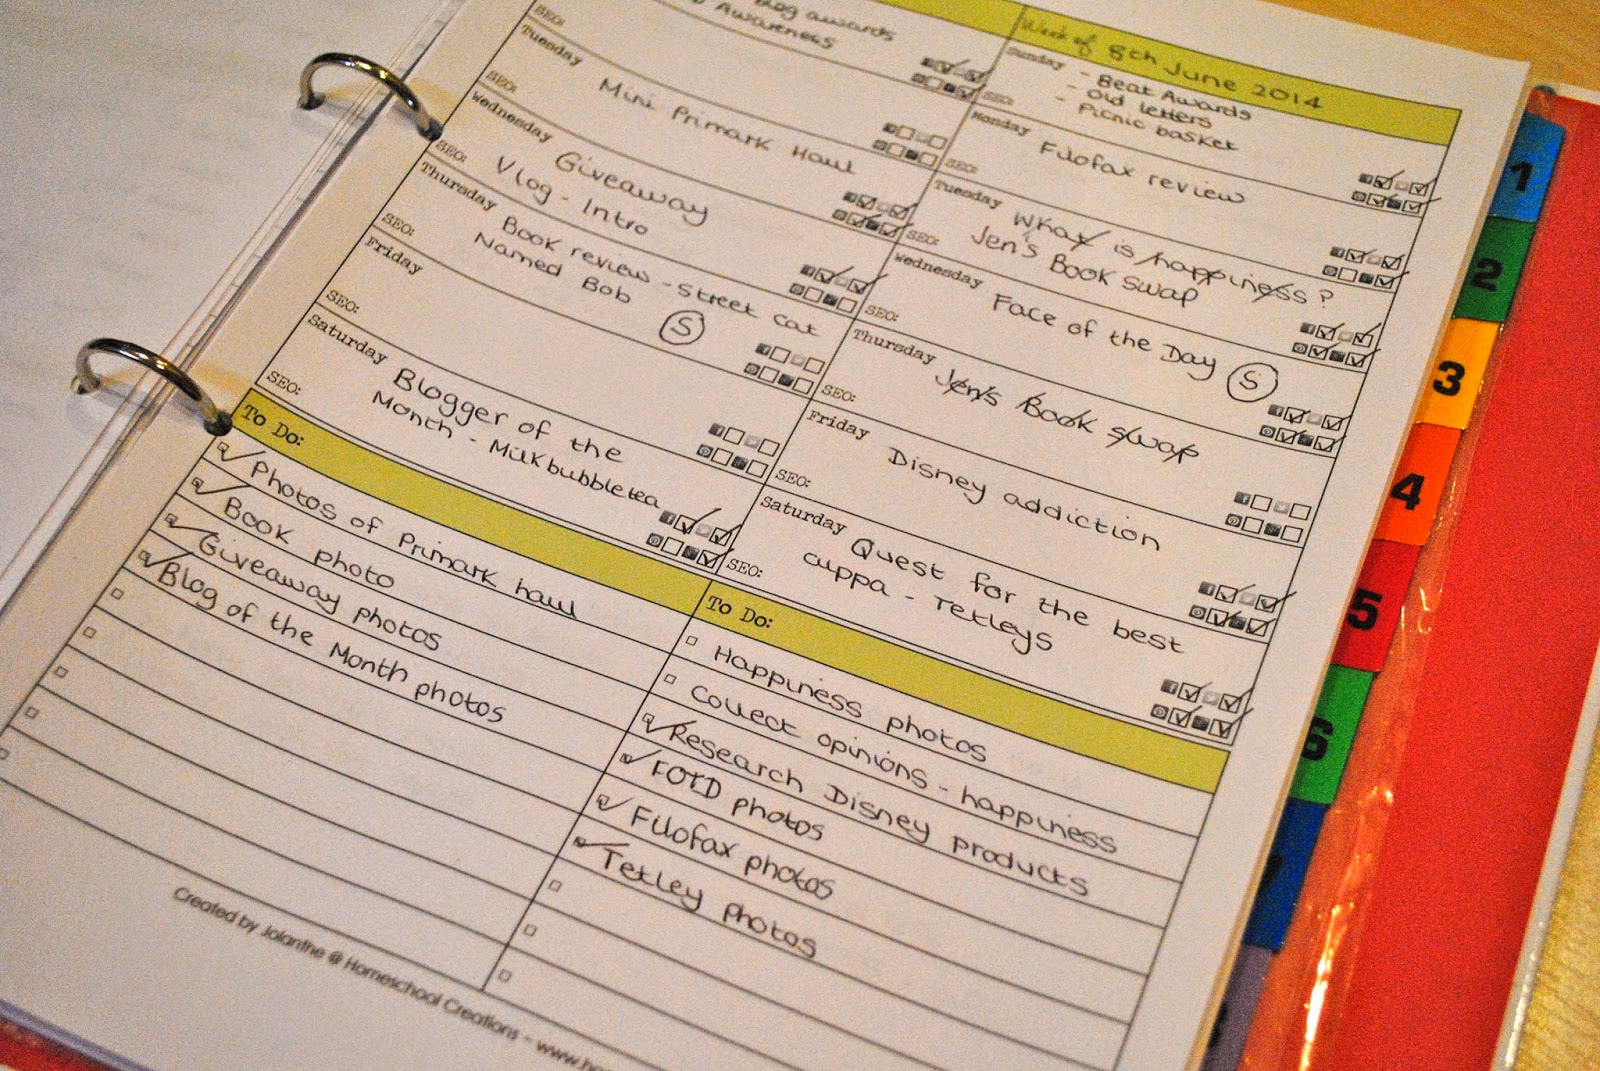 awards
Awareness
SEO:
Tuesday
Mini Primark Haul
SEO:
Wednesday
Giveaway
Vlog - Intro
SEO:
Thursday
Book review - Street Cat
Named Bob
S
SEO:
Friday
SEO:
Saturday
Blogger of the
Month - Milkbubbletea
SEO:
To Do:
Photos of Primark haul
Book photo
Giveaway photos
Blog of the Month photos
Week of 8th June 2014
Sunday
- Beat Awards
- Old letters
- Picnic basket
SEO:
Monday
Filofax review
SEO:
Tuesday
What is happiness?
Jen's Book Swap
SEO:
Wednesday
Face of the Day
S
SEO:
Thursday
Jen's Book swap
SEO:
Friday
Disney addiction
SEO:
Saturday
Quest for the best
cuppa - Tetleys
SEO:
To Do:
Happiness photos
Collect opinions - happiness
Research Disney products
FOTD photos
Filofax photos
Tetley photos
Created by Jolanthe @ Homeschool Creations -
1
2
3
4
5
6